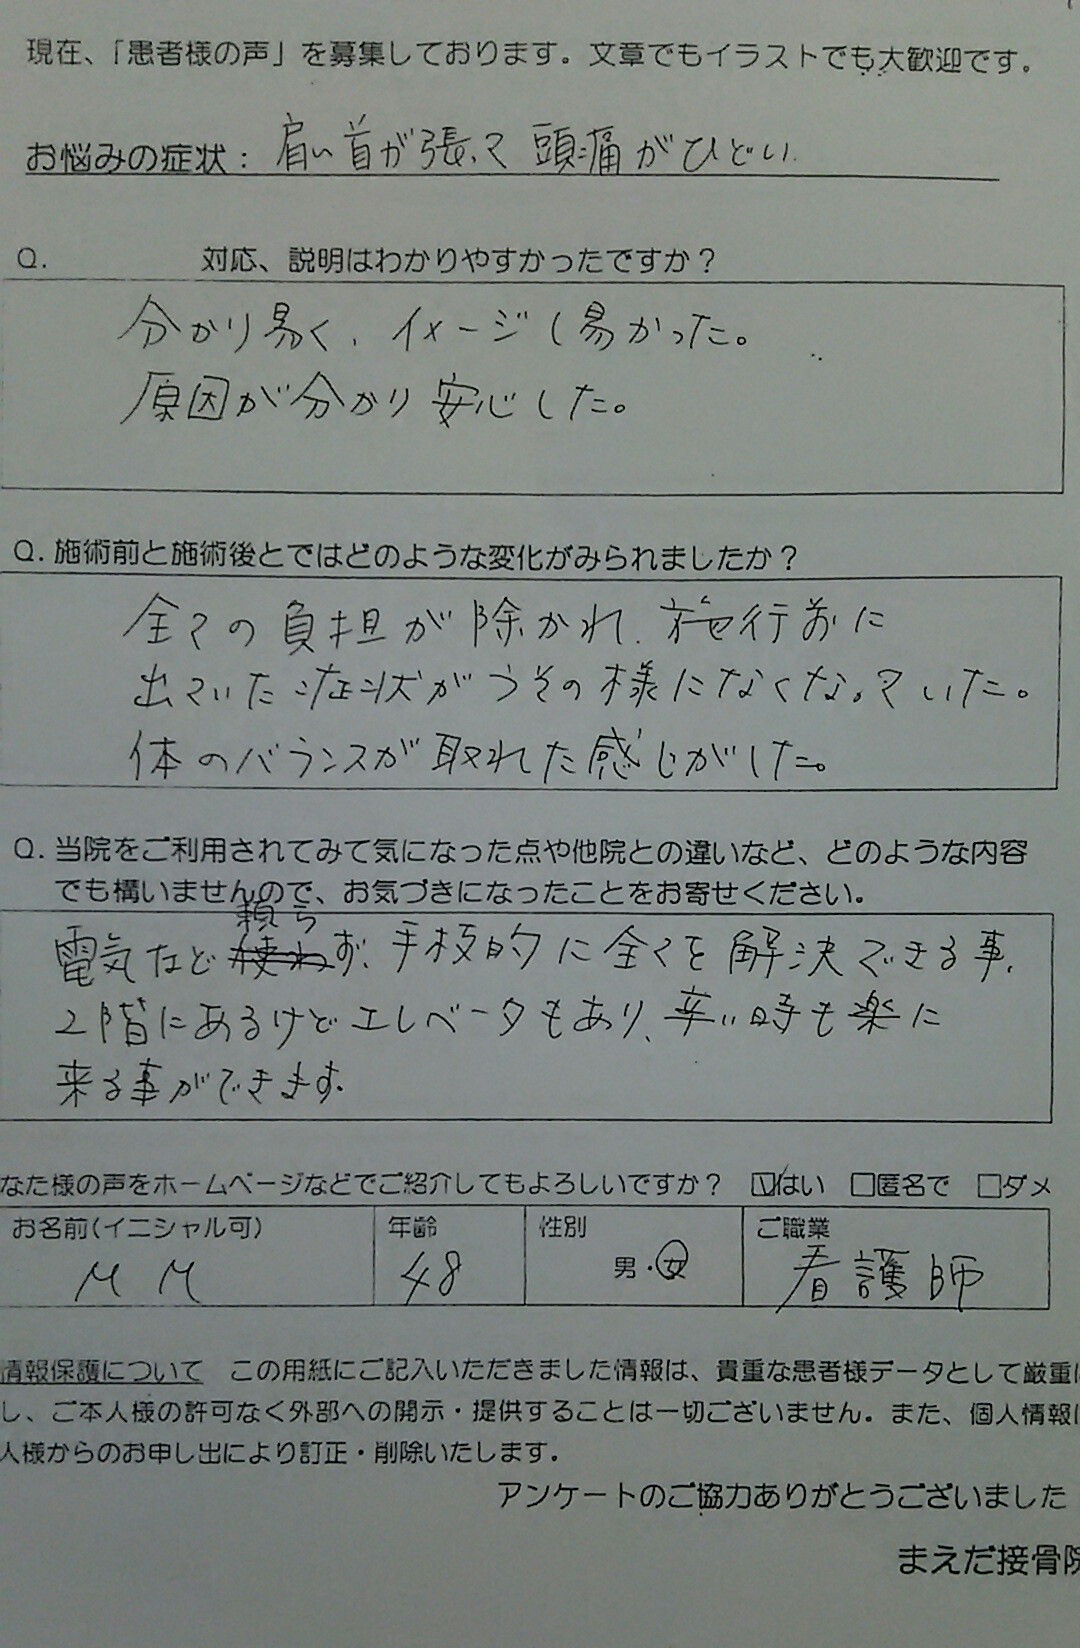 現在、「患者様の声」を募集しております。文章でもイラストでも大歓迎です。
お悩みの症状： 肩い首が張って頭痛がひどい
Q. 対応、説明はわかりやすかったですか？
分かり易く、イメージし易かった。
原因が分かり安心した。
Q. 施術前と施術後とではどのような変化がみられましたか？
全ての負担が除かれ、施行前に
出ていた症状がうその様になくなっていた。
体のバランスが取れた感じがした。
Q. 当院をご利用されてみて気になった点や他院との違いなど、どのような内容
でも構いませんので、お気づきになったことをお寄せください。
頼ら
電気など使わず、手技的に全てを解決できる事、
2階にあるけどエレベータもあり、辛い時も楽に
来る事ができます。
なた様の声をホームページなどでご紹介してもよろしいですか？ ☑はい □匿名で □ダメ
お名前(イニシャル可) 年齢 性別 ご職業
M M 48 男・女 看護師
情報保護について この用紙にご記入いただきました情報は、貴重な患者様データとして厳重に
し、ご本人様の許可なく外部への開示・提供することは一切ございません。また、個人情報は
人様からのお申し出により訂正・削除いたします。
アンケートのご協力ありがとうございました
まえだ接骨院